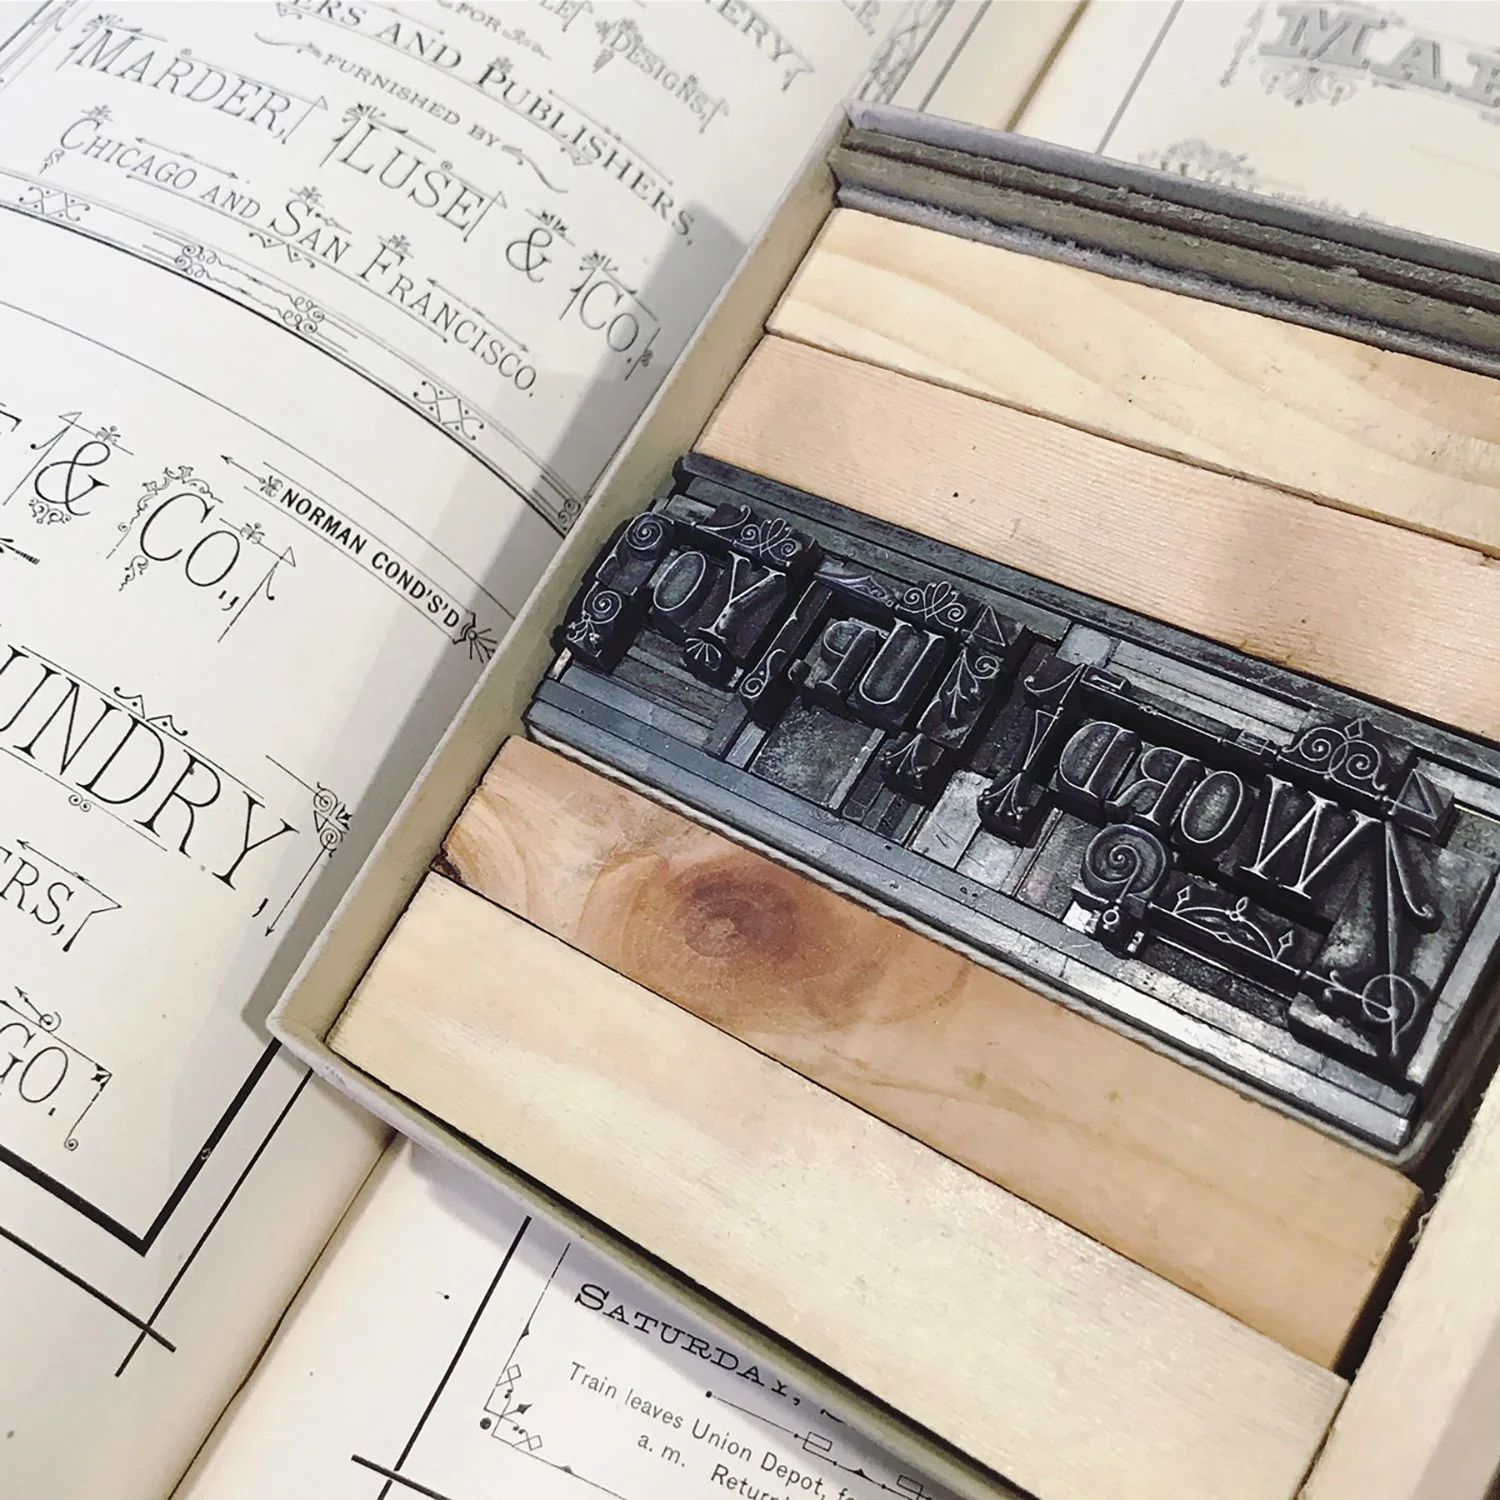 FOR DESIGNS
AND PUBLISHERS,
FURNISHED BY
MARDER, LUSE & CO.
CHICAGO AND SAN FRANCISCO.
& CO.,
NORMAN COND'S'D
UNDRY,
ERS,
GO.
WORD UP, YO
SATURDAY,
Train leaves Union Depot,
a. m.